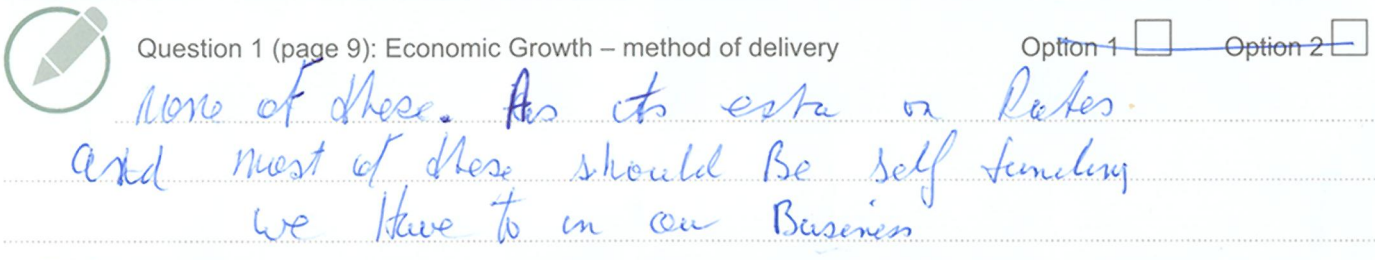 Question 1 (page 9): Economic Growth – method of delivery Option 1 Option 2
none of these. As its esta on Rates.
and most of these should Be self funding
we Have to in our Business